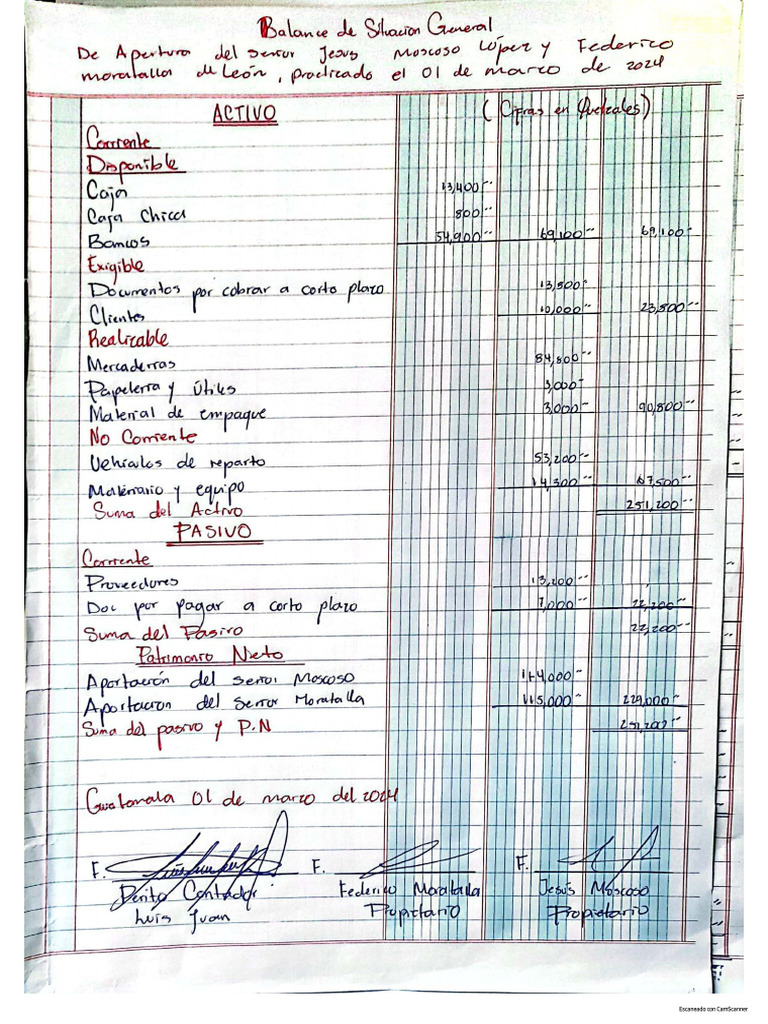 Balance de Situacion General
De Apertura del señor Jesus Moscoso López y Federico
moratalla de León, practicado el 01 de marzo de 2024
ACTIVO (Cifras en Quetzales)
Corriente
Disponible
Caja 13,400--
Caja Chica 800--
Bancos 54,900-- 69,100-- 69,100-
Exigible
Documentos por cobrar a corto plazo 13,500-
Clientes 10,000-- 23,500--
Realizable
Mercaderias 84,800--
Papeleria y Útiles 3,000-
Material de empaque 3,000-- 90,800--
No Corriente
Vehículos de reparto 53,200--
Mobiliario y equipo 14,300-- 67,500--
Suma del Activo 251,200--
PASIVO
Corriente
Proveedores 15,200--
Doc por pagar a corto plazo 7,000-- 22,200--
Suma del Pasivo 22,200--
Patrimonio Neto
Aportación del señor Moscoso 114,000--
Aportacion del señor Moratalla 115,000-- 229,000--
Suma del pasivo y P.N 251,200--
Guatemala 01 de marzo del 2024
F. F. F.
Perito Contador Federico Moratalla Jesús Moscoso
Luis Juan Propietario Propietario
Escaneado con CamScanner